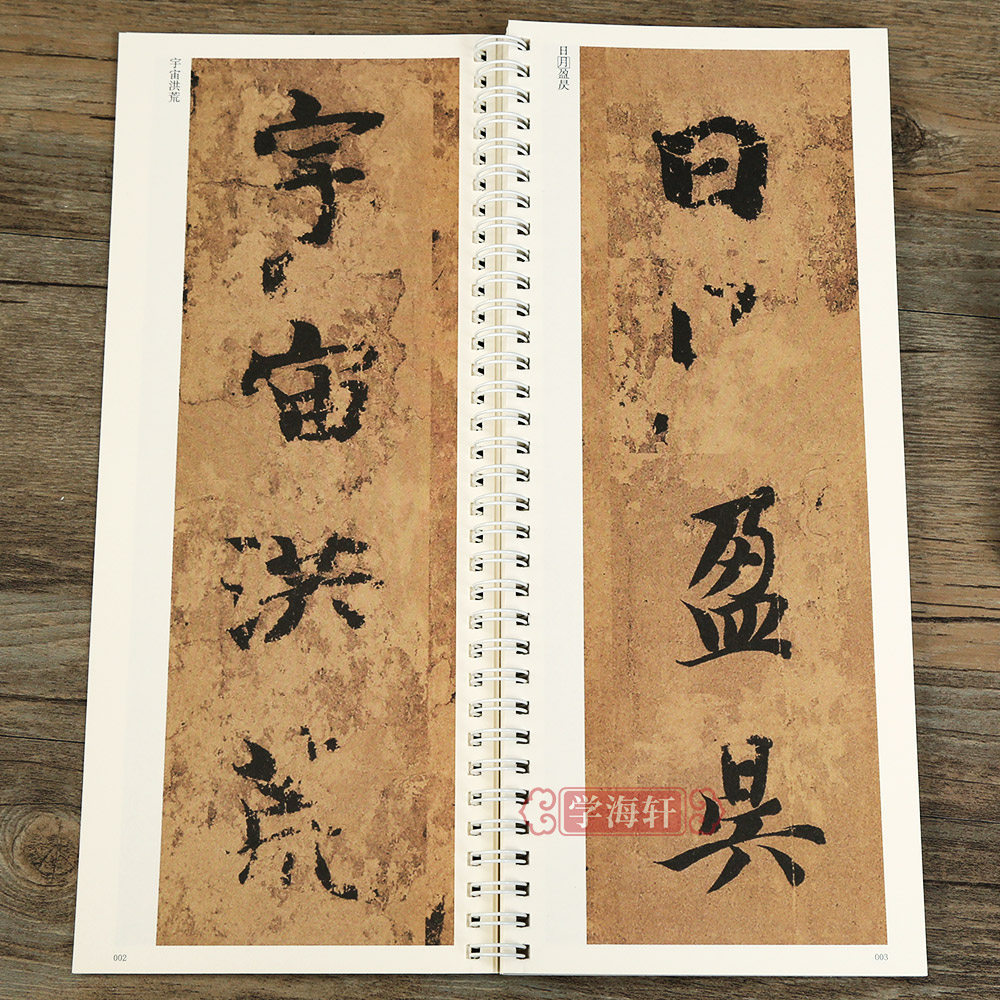 宇宙洪荒
宇宙洪荒
002
日月盈昃
日盈昃
003
学海轩